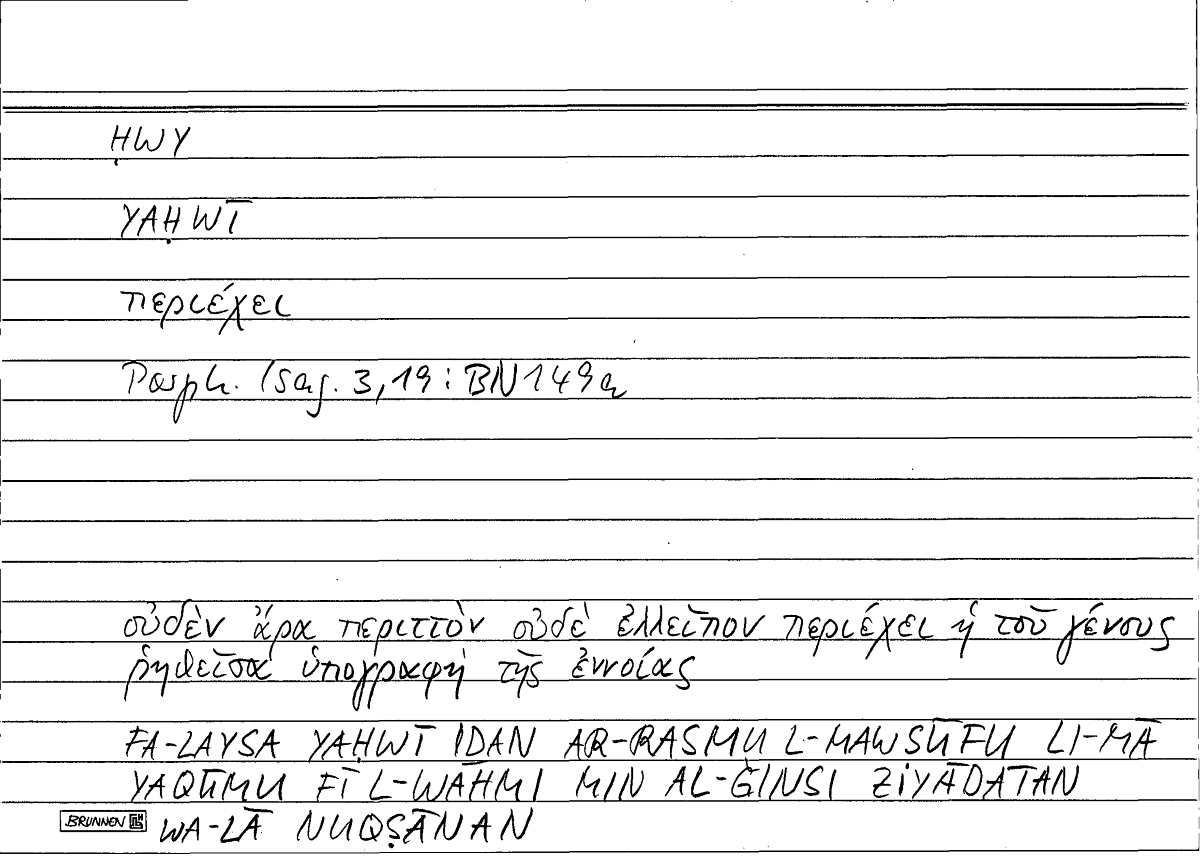 ḤWY
YAḤWĪ
περιέχει
Porph. Isag. 3,19: BN149a
οὐδὲν ἄρα περιττὸν οὐδὲ ἐλλεῖπον περιέχει ἡ τοῦ γένους
ῥηθεῖσα ὑπογραφὴ τῆς ἐννοίας
FA-LAYSA YAḤWĪ IDAN AR-RASMU L-MAWSŪFU LI-MĀ
YAQŪMU FĪ L-WAHMI MIN AL-ĠINSI ZIYĀDATAN
BRUNNEN WA-LĀ NUQṢĀNAN